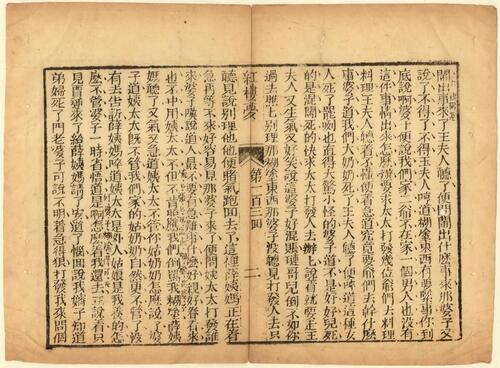 鬧出事來了王夫人聽了便問鬧出什麼事來那婆子又
說了不得了不得王夫人哼道糊塗東西有要緊事你到
底說啊婆子便說我們家二爺不在家一個男人也沒有
這件事情出來怎麼辦要求太太打發幾位爺們去料理
料理王夫人聽着不懂便急着道究竟要爺們去幹什麼
事婆子道我們大奶奶死了王夫人聽了便啐道這種女
人死了罷咧也值得大驚小怪的婆子道不是好好兒死
的是混鬧死的快求太太打發人去辦辦說着就要走王
夫人又生氣又好笑說這婆子好混賬璉哥兒倒不如你
過去瞧瞧別理那糊塗東西那婆子沒聽見打發人去只
紅樓夢 第一百三回 二
聽見說別理他他便賭氣跑回去了這裡薛姨媽正在着
急再等不來好容易見那婆子來了便問姨太太打發誰
來婆子嘆說道人最不要有急難事什麼好親好眷看來
也不中用姨太太不但不肯照應我們倒罵我糊塗薛姨
媽聽了又氣又急道姨太太不管你姑奶奶怎麼說了婆
子道姨太太既不管我們家的姑奶奶自然更不管了沒
有去告訴薛姨媽啐道姨太太是外人姑娘是我養的怎
麼不管婆子一時省悟道是啊這麼着我還去正說着只
見賈璉來了給薛姨媽請了安道了惱回說我嬸子知道
弟婦死了問老婆子再說不明着急得狠打發我來問個